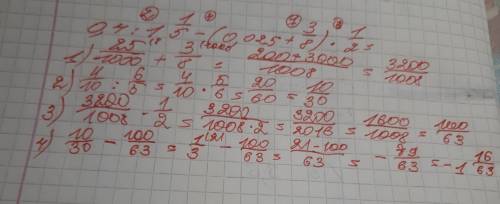 ② + ① ③
0,4 : 1 1/5 - (0,025 + 3/8) · 1/2 =
1) 25/1000 (8 + 3/8 (1000 = 200+3000/1008 = 3200/1008
2) 4/10 : 6/5 = 4/10 · 5/6 = 20/60 = 10/30
3) 3200/1008 · 1/2 = 3200/1008·2 = 3200/2016 = 1600/1008 = 100/63
4) 10/30 - 100/63 = 1/3 (21 - 100/63 = 21-100/63 = - 79/63 = -1 16/63